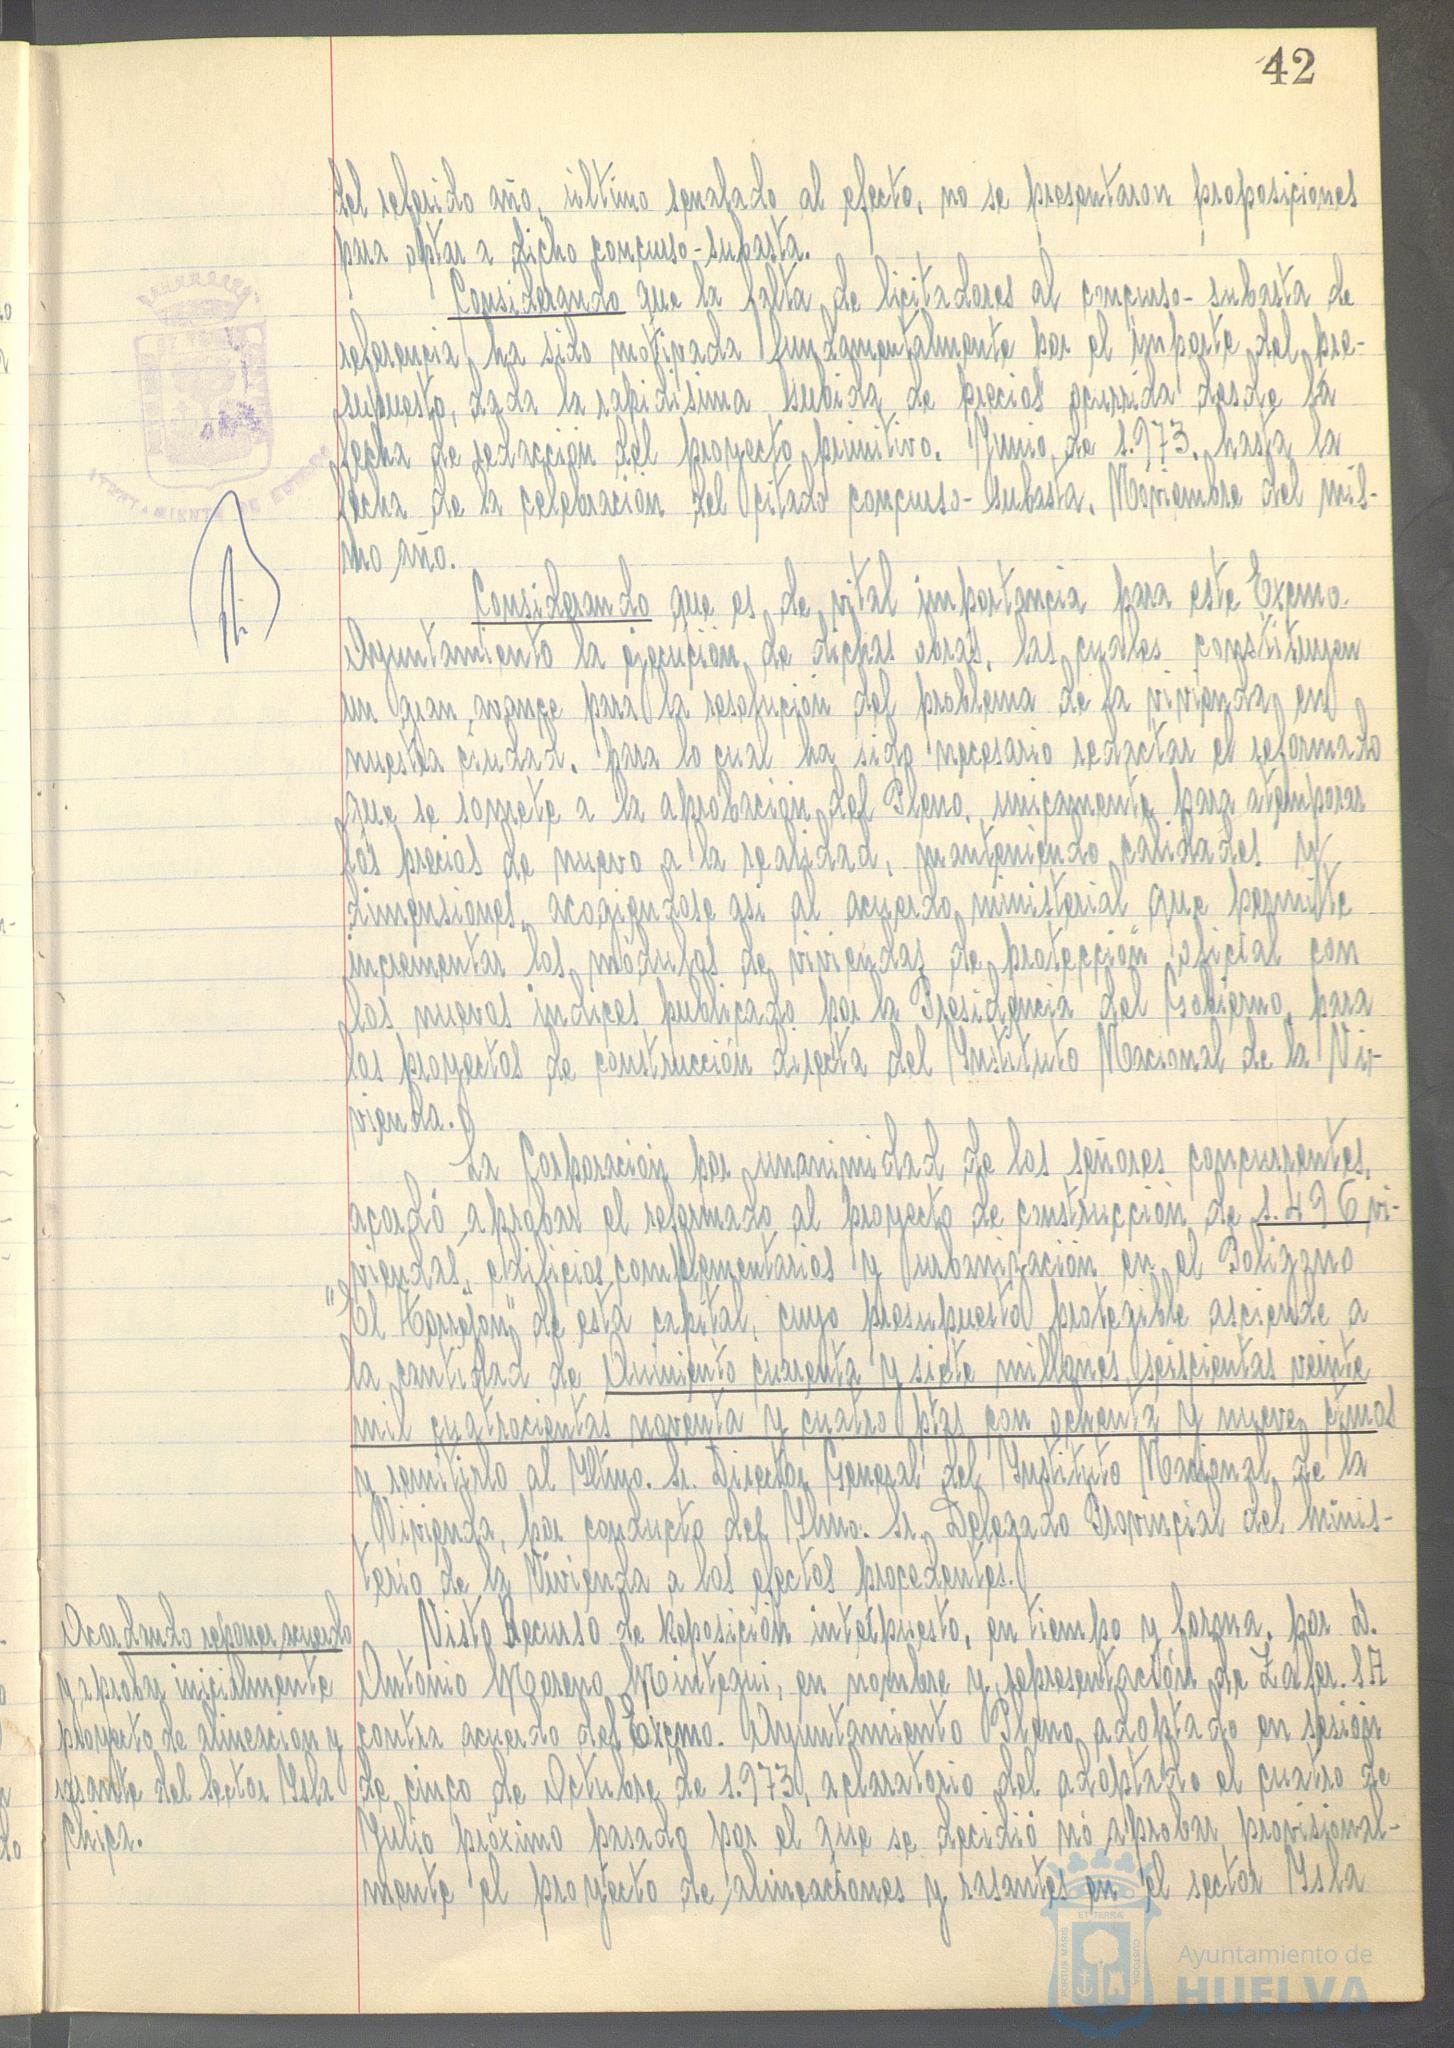 42
del referido año, último senalado al efecto, no se presentaron proposiciones
para optar a dicho concurso-subasta.
Considerando que la falta de licitadores al concurso-subasta de
referencia ha sido motivada fundamentalmente por el importe del pre-
supuesto, dada la rapidisima subida de precios ocurrida desde la
fecha de redacción del proyecto primitivo, Junio de 1.973, hasta la
fecha de la celebración del citado concurso-subasta, Noviembre del mis-
mo año.
Considerando que es de vital importancia para este Excmo.
Ayuntamiento la ejecución de dichas obras, las cuales constituyen
un gran avance para la resolución del problema de la vivienda en
nuestra ciudad, para lo cual ha sido necesario redactar el reformado
que se somete a la aprobación del Pleno, unicamente para atemperar
los precios de nuevo a la realidad, manteniendo calidades y
dimensiones, acogiendose asi al acuerdo ministerial que permite
incrementar los módulos de viviendas de protección oficial con
los nuevos indices publicado por la Presidencia del Gobierno, para
los proyectos de construcción directa del Instituto Nacional de la Vi-
vienda.
La Corporación por unanimidad de los señores concurrentes,
acordó aprobar el reformado al proyecto de construcción de 1.496 vi-
viendas, edificios complementarios y urbanización en el Poligono
"El Torrejon" de esta capital, cuyo presupuesto protegible asciende a
la cantidad de Quiniento cuarenta y siete millones seiscientas veinte
mil cuatrocientas noventa y cuatro ptas con ochenta y nueve ctmos
y remitirlo al Iltmo. Sr. Director General del Instituto Nacional de la
Vivienda, por conducto del Ilmo. Sr. Delegado Provincial del Minis-
terio de la Vivienda a los efectos procedentes.
Acordando reponer acuerdo
y aprobar inicialmente
proyecto de alineacion y
rasante del sector Isla
Chica.
Visto Recurso de Reposición interpuesto, en tiempo y forma, por D.
Antonio Moreno Mintegui, en nombre y representación de Zafer. SA
contra acuerdo del Excmo. Ayuntamiento Pleno adoptado en sesión
de cinco de Octubre de 1.973, aclaratorio del adoptado el cuatro de
Julio próximo pasado por el que se decidió no aprobar provisional-
mente el proyecto de alineaciones y rasantes en el sector Isla
ET TERRA
PORTUS MARIS
CUSTODIA
Ayuntamiento de
HUELVA